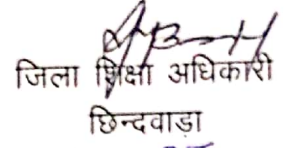 जिला शिक्षा अधिकारी
छिन्दवाड़ा